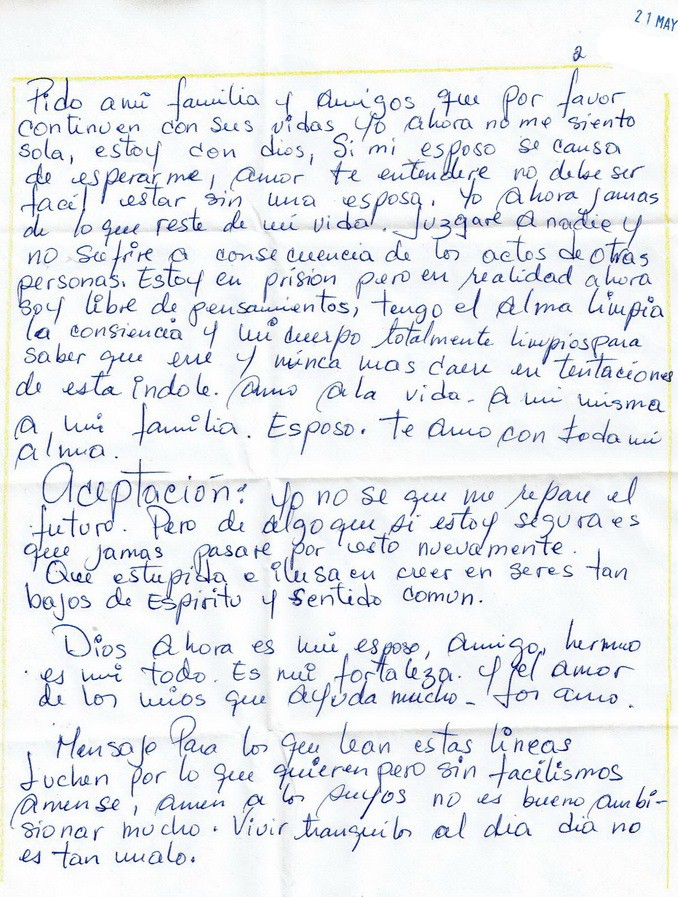 21 MAY
2
Pido a mi familia y amigos que por favor
continuen con sus vidas yo ahora no me siento
sola, estoy con dios, Si mi esposo se causa
de esperarme, amor te entendere no debe ser
facil estar sin una esposa. Yo ahora jamas
de lo que reste de mi vida. Juzgare a nadie y
no sufrire a consecuencia de los actos de otras
personas. Estoy en prision pero en realidad ahora
soy libre de pensamientos, tengo el alma limpia
la consiencia y mi cuerpo totalmente limpios para
saber que erre y nunca mas caere en tentaciones
de esta indole. Amo a la vida. A mi misma
a mi familia. Esposo. Te amo con toda mi
alma.
Aceptación: Yo no se que me repare el
futuro. Pero de algo que si estoy segura es
que jamas pasare por esto nuevamente.
Que estupida e ilusa en creer en seres tan
bajos de Espiritu y sentido comun.
Dios Ahora es mi esposo, amigo, hermno
es mi todo. Es mi fortaleza. y el amor
de los mios que ayuda mucho - los amo.
Mensaje Para los que lean estas lineas
Luchen por lo que quieren pero sin facilismos
amense, amen a los suyos no es bueno ambi-
sionar mucho. Vivir tranquilos al dia dia no
es tan malo.